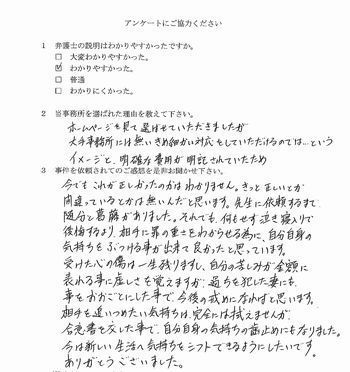 アンケートにご協力ください
1 弁護士の説明はわかりやすかったですか。
□ 大変わかりやすかった。
☑ わかりやすかった。
□ 普通
□ わかりにくかった。
2 当事務所を選ばれた理由を教えて下さい。
ホームページを見て選ばせていただきましたが
大手事務所には無いきめ細かい対応をしていただけるのでは…という
イメージと、明確な費用が明記されていたため
3 事件を依頼されてのご感想を是非お聞かせ下さい。
今でもこれが正しかったのかはわかりません。きっと正しいとか
間違っているとかは無いんだと思います。先生に依頼するまで
随分と葛藤がありました。それでも、何もせず泣き寝入りで
後悔するより、相手に罪の重さをわからせる為に、自分自身の
気持ちをぶつける事が出来て良かったと思っています。
受けた心の傷は一生残りますし、自分の苦しみが金額に
表れる事に虚しさを覚えますが、過ちを犯した妻にも
事をおおごとにした事で、今後の戒めになればと思います。
相手を追いつめたい気持ちは、完全には拭えませんが
合意書を交した事で、自分自身の気持ちの歯止めにもなりました。
今は新しい生活へ気持ちをシフトできるようにしたいです。
ありがとうございました。